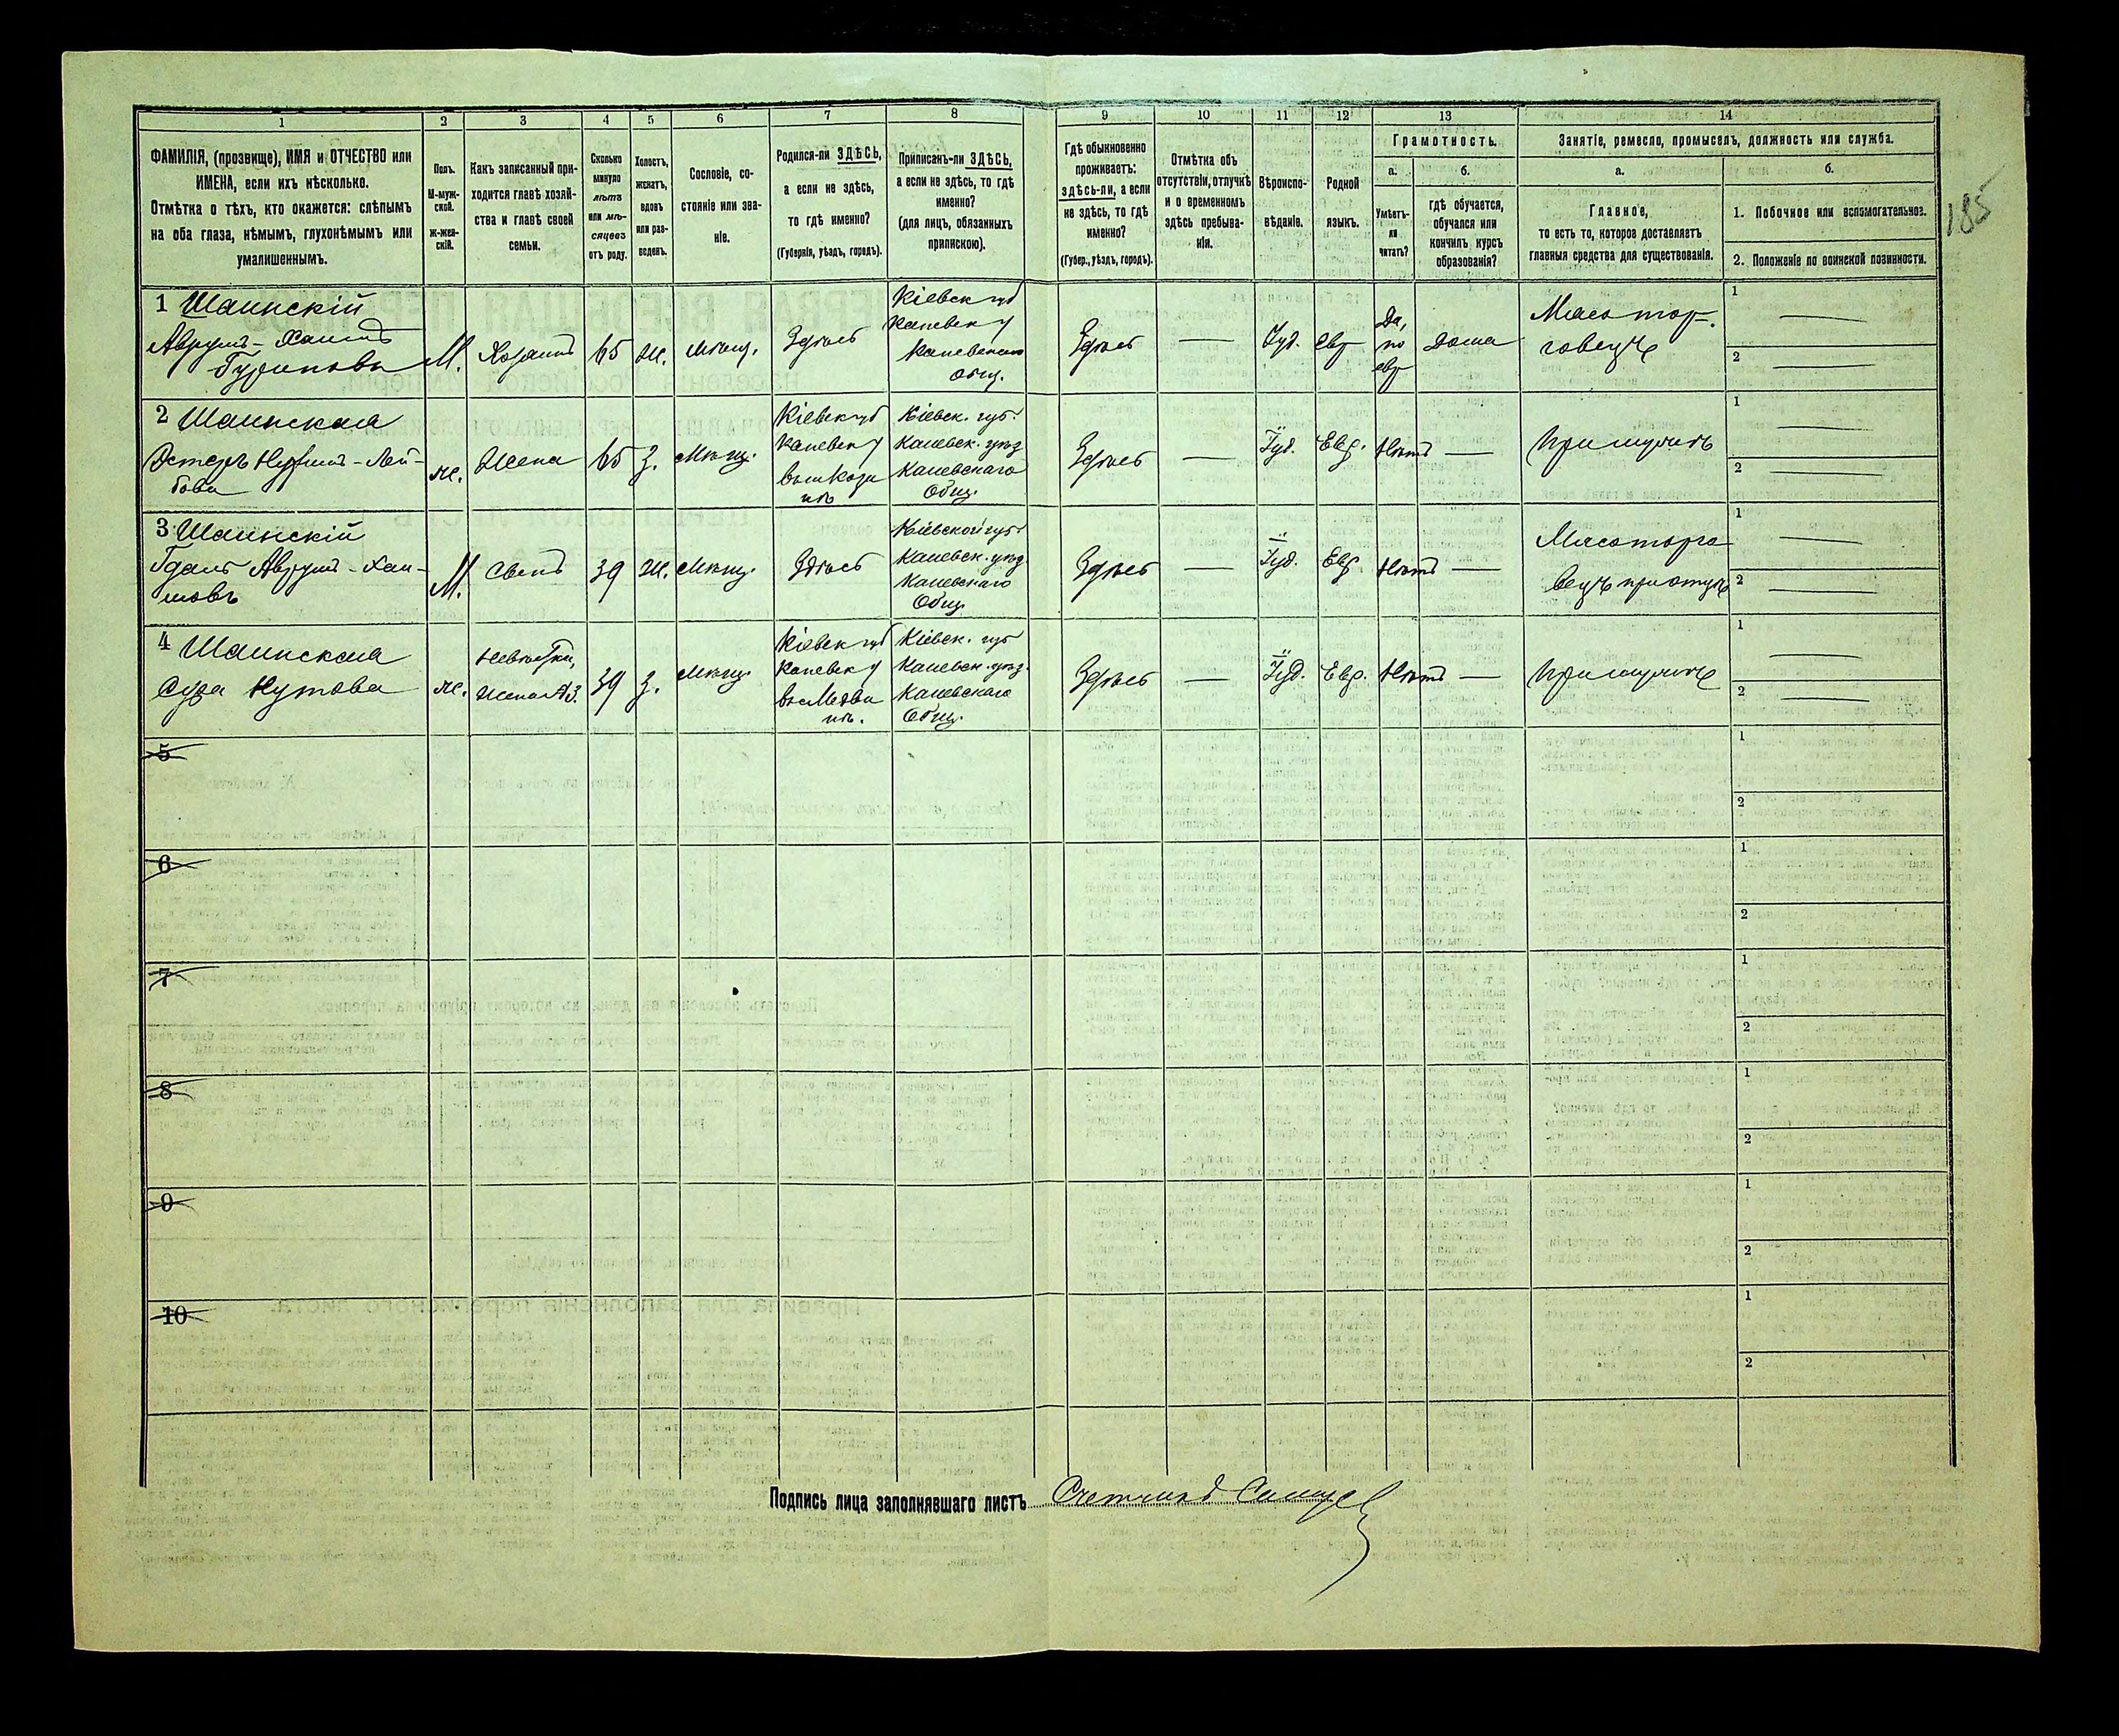 185
1 2 3 4 5 6 7 8 9 10 11 12 13 14
ФАМИЛІЯ, (прозвище), ИМЯ и ОТЧЕСТВО или
ИМЕНА, если ихъ нѣсколько.
Отмѣтка о тѣхъ, кто окажется: слѣпымъ
на оба глаза, нѣмымъ, глухонѣмымъ или
умалишеннымъ.
Полъ.
М-муж-
ской.
ж-жен-
скій.
Какъ записанный при-
ходится главѣ хозяй-
ства и главѣ своей
семьи.
Сколько
минуло
лѣтъ
или мѣ-
сяцевъ
отъ роду.
Холостъ,
женатъ,
вдовъ
или раз-
веденъ.
Сословіе, со-
стояніе или зва-
ніе.
Родился-ли ЗДѢСЬ,
а если не здѣсь,
то гдѣ именно?
(Губернія, уѣздъ, городъ).
Приписанъ-ли ЗДѢСЬ,
а если не здѣсь, то гдѣ
именно?
(для лицъ, обязанныхъ
припискою).
Гдѣ обыкновенно
проживаетъ:
здѣсь-ли, а если
не здѣсь, то гдѣ
именно?
(Губер., уѣздъ, городъ).
Отмѣтка объ
отсутствіи, отлучкѣ
и о временномъ
здѣсь пребыва-
ніи.
Вѣроиспо-
вѣданіе.
Родной
языкъ.
Грамотность.
а.
Умѣетъ-
ли
читать?
б.
гдѣ обучается,
обучался или
кончилъ курсъ
образованія?
Занятіе, ремесло, промыселъ, должность или служба.
а.
Главное,
то есть то, которое доставляетъ
главныя средства для существованія.
б.
1. Побочное или вспомогательное.
2. Положеніе по воинской повинности.
1 Шаинскій
Аврумъ-Хаимъ
М.
Хозяинъ
65
Ж.
мѣщ.
Здѣсь
Кіевск губ
Каневск у
Каневскаго
общ.
Здѣсь
—
Іуд.
евр
Да,
по
евр
Дома
Мясотор-
говецъ
1 —
2 —
2 Шаинская
Эстеръ
ж.
Жена
65
З.
Мѣщ.
Кіевск губ
Каневск у
Кіевск. губ.
Каневск. уѣзд
Каневскаго
Общ.
Здѣсь
—
Іуд.
Евр.
Нѣтъ
—
При мужѣ
1 —
2 —
3 Шаинскій
Аврумъ-Хаи-
мовъ
М.
Сынъ
39
Ж.
Мѣщ.
Здѣсь
Кіевской губ
Каневск. уѣзд
Каневскаго
Общ.
Здѣсь
—
Іуд.
Евр.
Нѣтъ
—
Мясоторго
вецъ при отцѣ
1 —
2 —
4 Шаинская
Сура Нутова
ж.
Невѣстка,
Жена №3.
39
З.
Мѣщ.
Кіевск губ
Каневск у
Кіевск. губ
Каневск. уѣзд.
Каневскаго
Общ.
Здѣсь
—
Іуд.
Евр.
Нѣтъ
—
При мужѣ
1 —
2 —
5
1
2
6
1
2
7
1
2
8
1
2
9
1
2
10
1
2
Подпись лица заполнявшаго листъ Счетчикъ